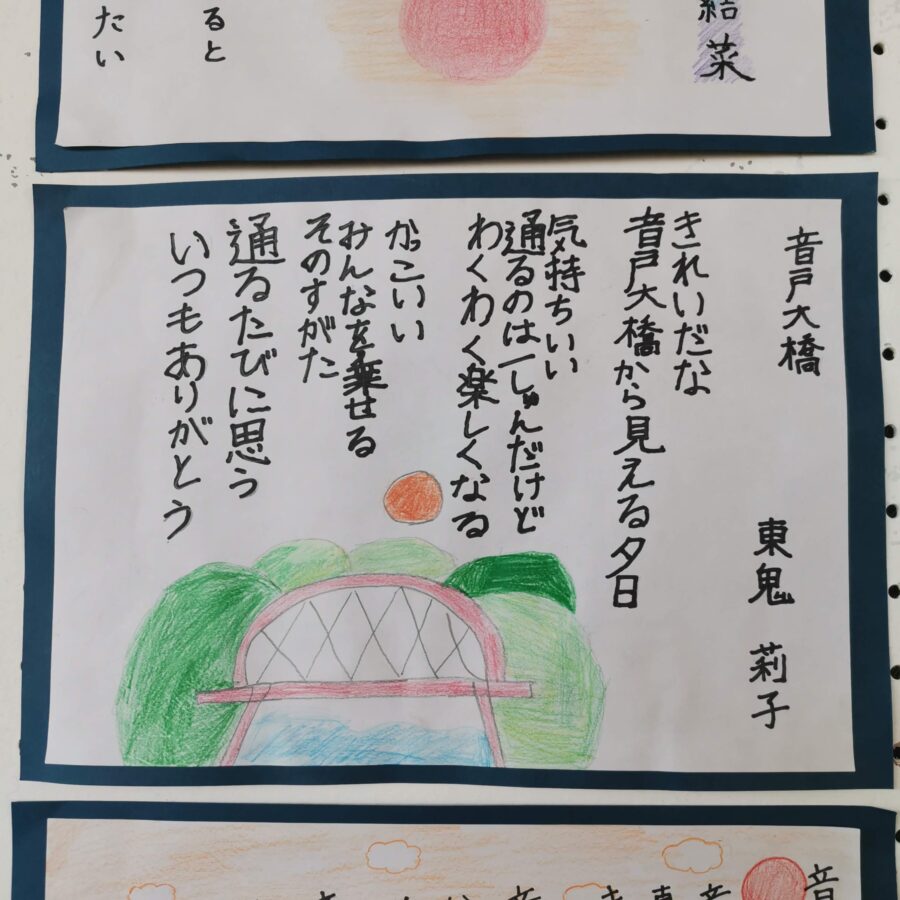 結菜
ると
たい
音戸大橋
東鬼 莉子
きれいだな
音戸大橋から見える夕日
気持ちいい
通るのは一しゅんだけど
わくわく楽しくなる
かっこいい
みんなを乗せる
そのすがた
通るたびに思う
いつもありがとう
音